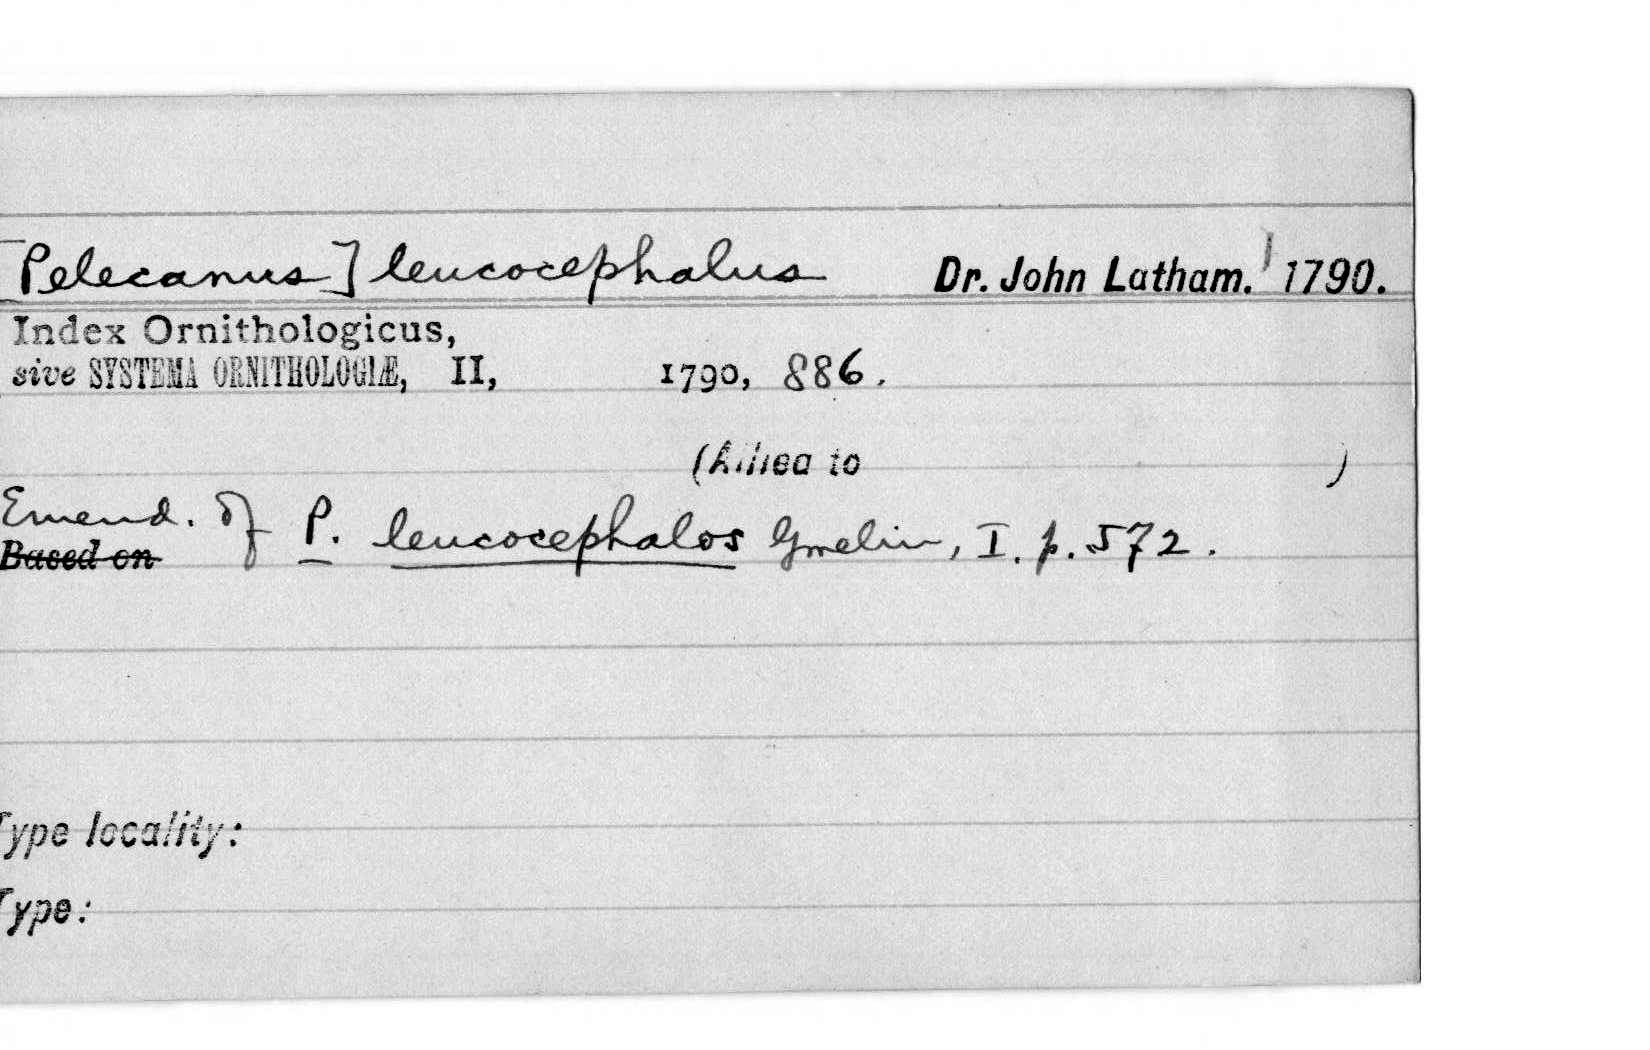 [Pelecanus] leucocephalus Dr. John Latham. 1790.
Index Ornithologicus,
sive SYSTEMA ORNITHOLOGIÆ, II, 1790, 886.
(Allied to )
Emend. of P. leucocephalos Gmelin, I. p. 572.
Based on
Type locality:
Type: